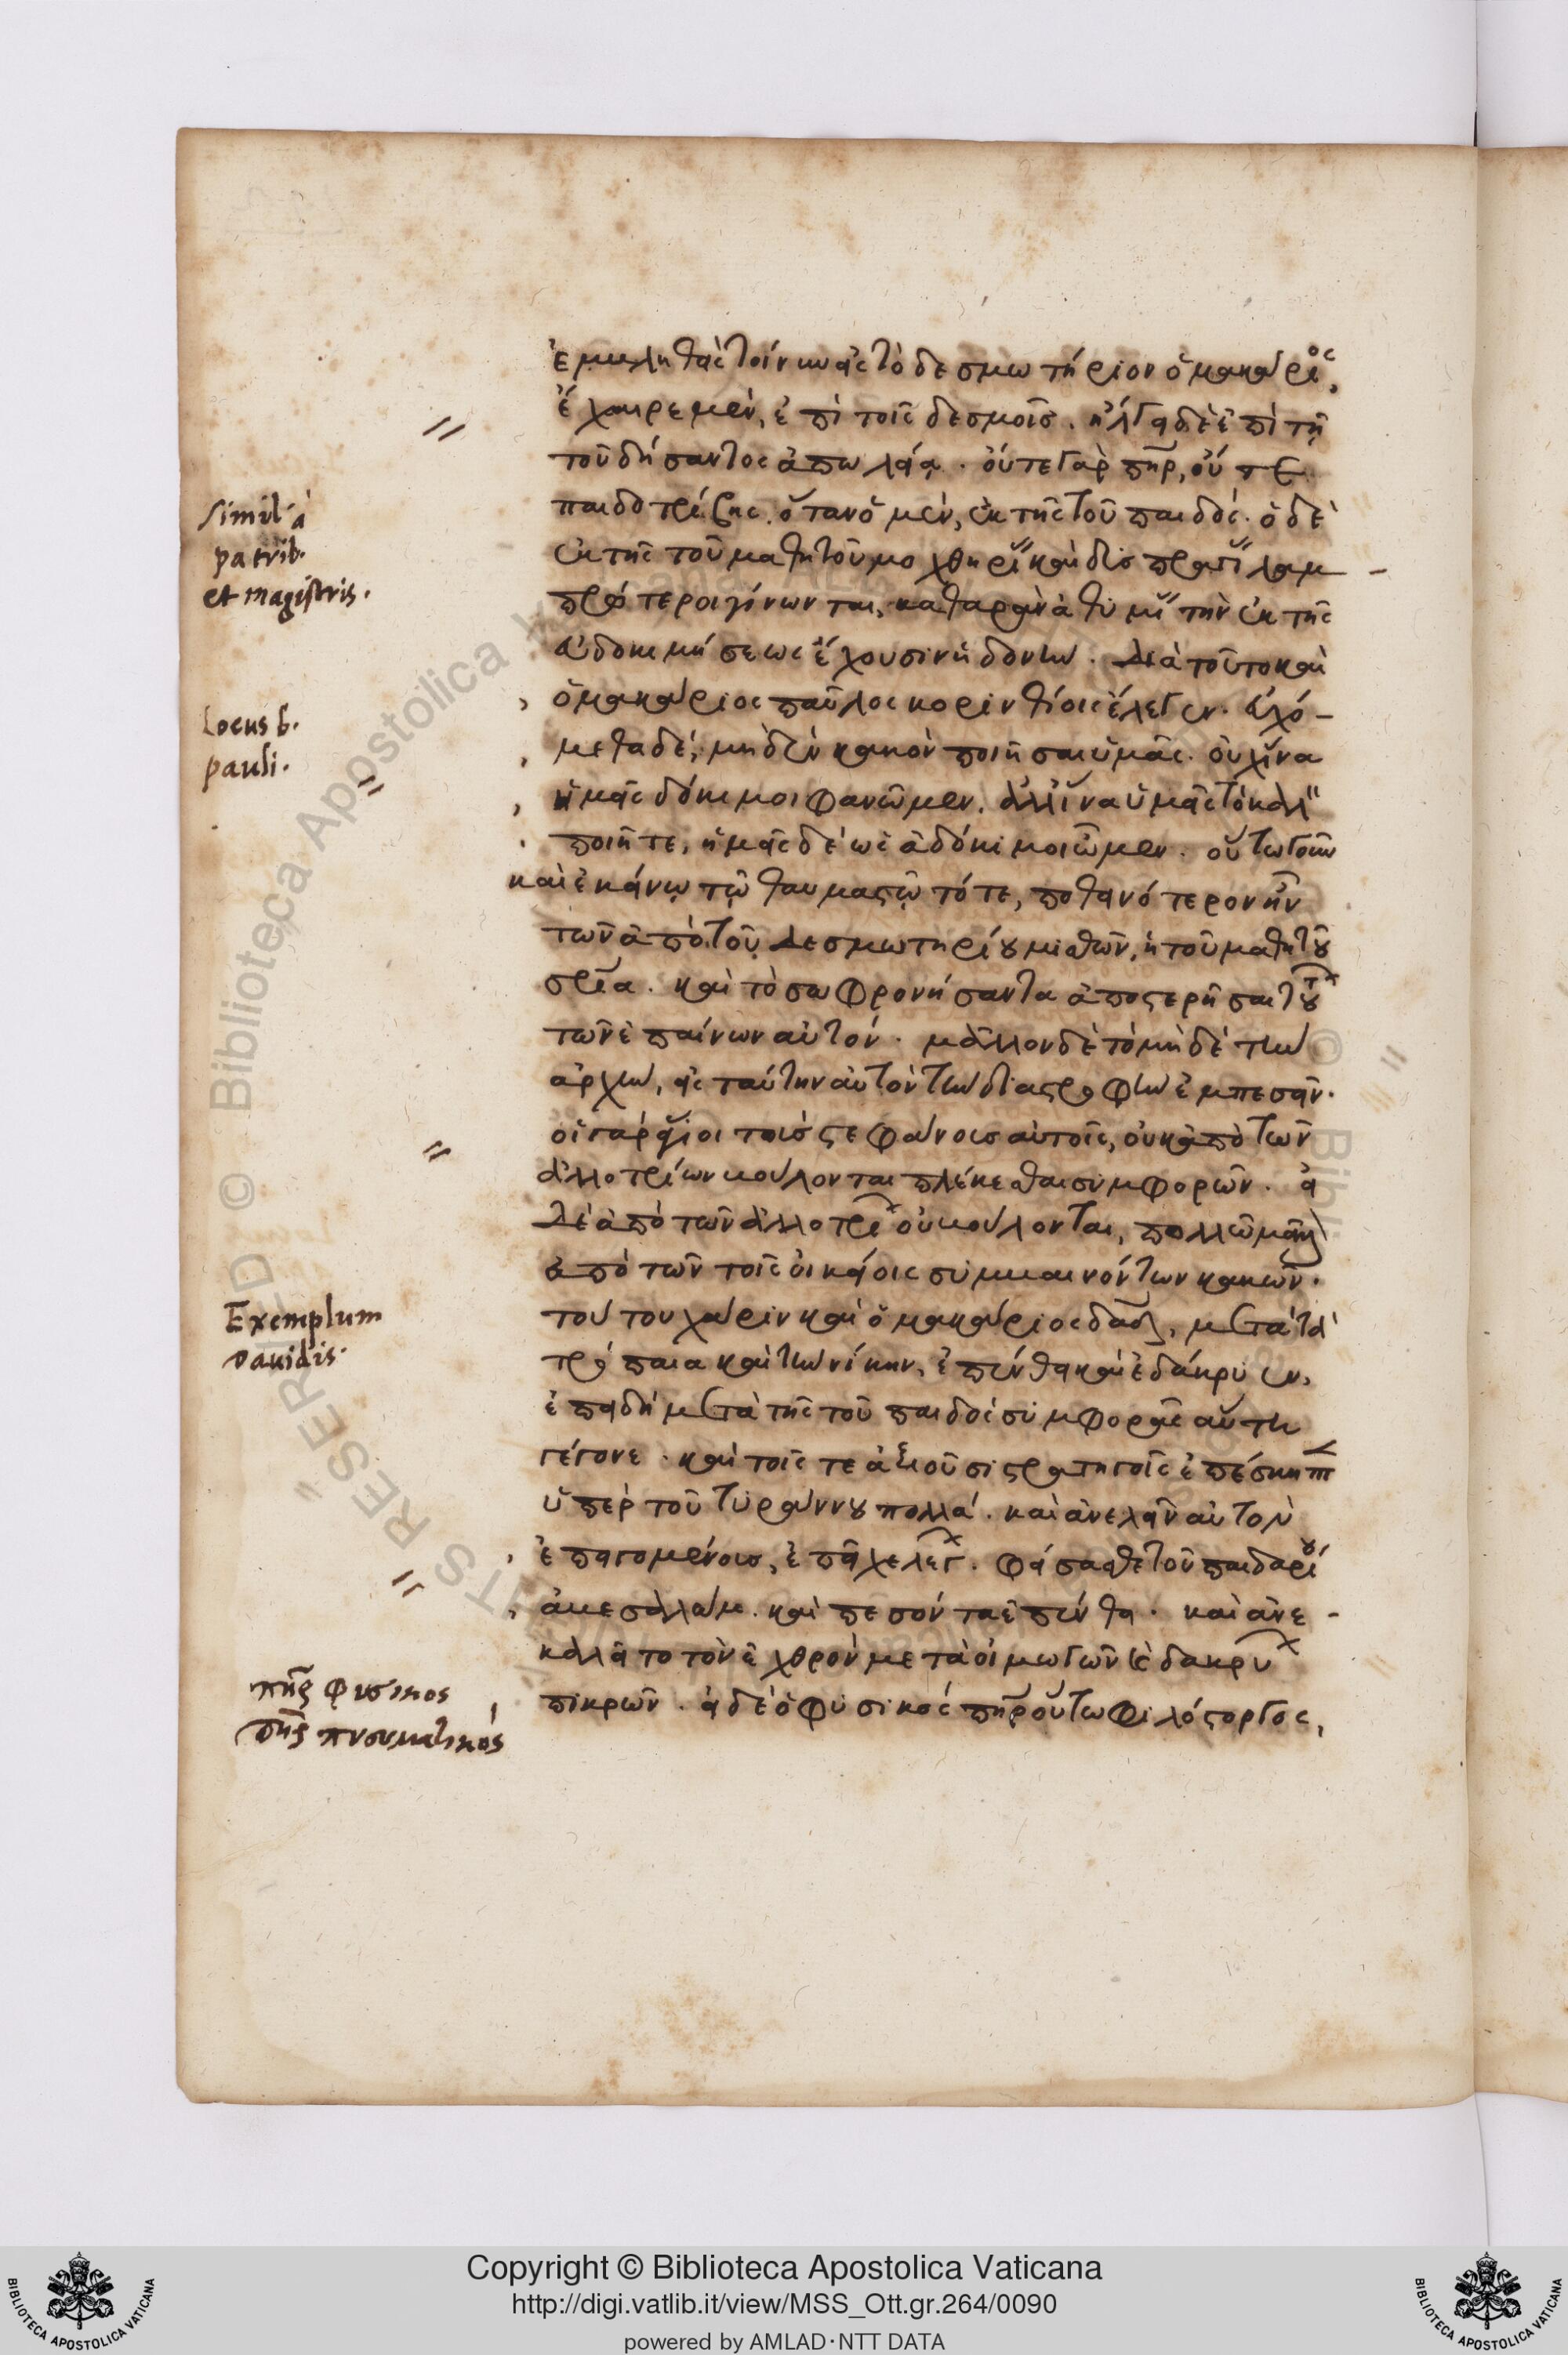 ἐμβληθεὶς τοίνυν εἰς τὸ δεσμωτήριον ὁ μακάριος,
ἔχαιρε μὲν, ἐπὶ τοῖς δεσμοῖς. ἤλγει δὲ ἐπὶ τῇ
τοῦ δήσαντος ἀπωλείᾳ. οὔτε γὰρ πὴρ, οὔτε
παιδοτρίβης. ὅταν ὁ μὲν, ἐκ τῆς τοῦ παιδός. ὁ δὲ
ἐκ τῆς τοῦ μαθητοῦ μοχθηρίας καὶ δυσπραγίας λαμ-
πρότεροι γίνωνται, καθαρὰν ἀθυμίας τὴν ἐκ τῆς
εὐδοκιμήσεως ἔχουσιν ἡδονήν. διὰ τοῦτο καὶ
ὁ μακάριος παῦλος κορινθίοις ἔλεγεν. εὐχό-
μεθα δὲ, μηδὲν κακὸν ποιῆσαι ὑμᾶς. οὐχ ἵνα
ἡμεῖς δόκιμοι φανῶμεν. ἀλλ' ἵνα ὑμεῖς τὸ καλὸν
ποιῆτε, ἡμεῖς δὲ ὡς ἀδόκιμοι ὦμεν. οὕτω γοῦν
καὶ ἐκείνῳ τῷ θαυμαστῷ τότε, ποθεινότερον ἦν
τῶν ἀπὸ τοῦ δεσμωτηρίου μισθῶν, ἡ τοῦ μαθητοῦ
σρία. καὶ τὸ σωφρονήσαντα ἀποστερῆσαι τούτων
τῶν ἐπαίνων αὐτόν. μᾶλλον δὲ τὸ μὴ δὲ τὴν
ἀρχὴν, εἰς ταύτην αὐτὸν τὴν διαστροφὴν ἐμπεσεῖν.
οἱ γὰρ ἅγιοι τοὺς στεφάνους αὐτοῖς, οὐκ ἀπὸ τῶν
ἀλλοτρίων βούλονται πλέκεσθαι συμφορῶν. εἰ
δὲ ἀπὸ τῶν ἀλλοτρίων οὐ βούλονται, πολλῶ μᾶλλον
ἀπὸ τῶν τοῖς οἰκείοις συμβαινόντων κακῶν.
τούτου χάριν καὶ ὁ μακάριος δαδ, μετὰ τὰ
τρόπαια καὶ τὴν νίκην, ἐπένθει καὶ ἐδάκρυεν,
ἐπειδὴ μετὰ τῆς τοῦ παιδὸς συμφορᾶς αὕτη
γέγονε. καὶ τοῖς τε ἐξιοῦσι στρατηγοῖς ἐπέσκηπτε
ὑπὲρ τοῦ τυράννου πολλά. καὶ ἀνελεῖν αὐτὸν
ἐπειγομένους, ἐπεῖχε λέγων. φείσασθε τοῦ παιδαρίου
ἀβεσαλώμ. καὶ πεσόντα ἐπένθει. καὶ ἀνε-
καλεῖτο τὸν ἐχθρὸν μετὰ οἰμωγῶν καὶ δακρύων
πικρῶν. εἰ δὲ ὁ φυσικὸς πὴρ οὕτω φιλόστοργος,
Simil. à
patrib.
et magistris.
Locus b.
pauli.
Exemplum
Dauidis.
πηρ φυσικος
πηρ πνευματικός
Copyright © Biblioteca Apostolica Vaticana
http://digi.vatlib.it/view/MSS_Ott.gr.264/0090
powered by AMLAD·NTT DATA
BIBLIOTECA APOSTOLICA VATICANA
BIBLIOTECA APOSTOLICA VATICANA